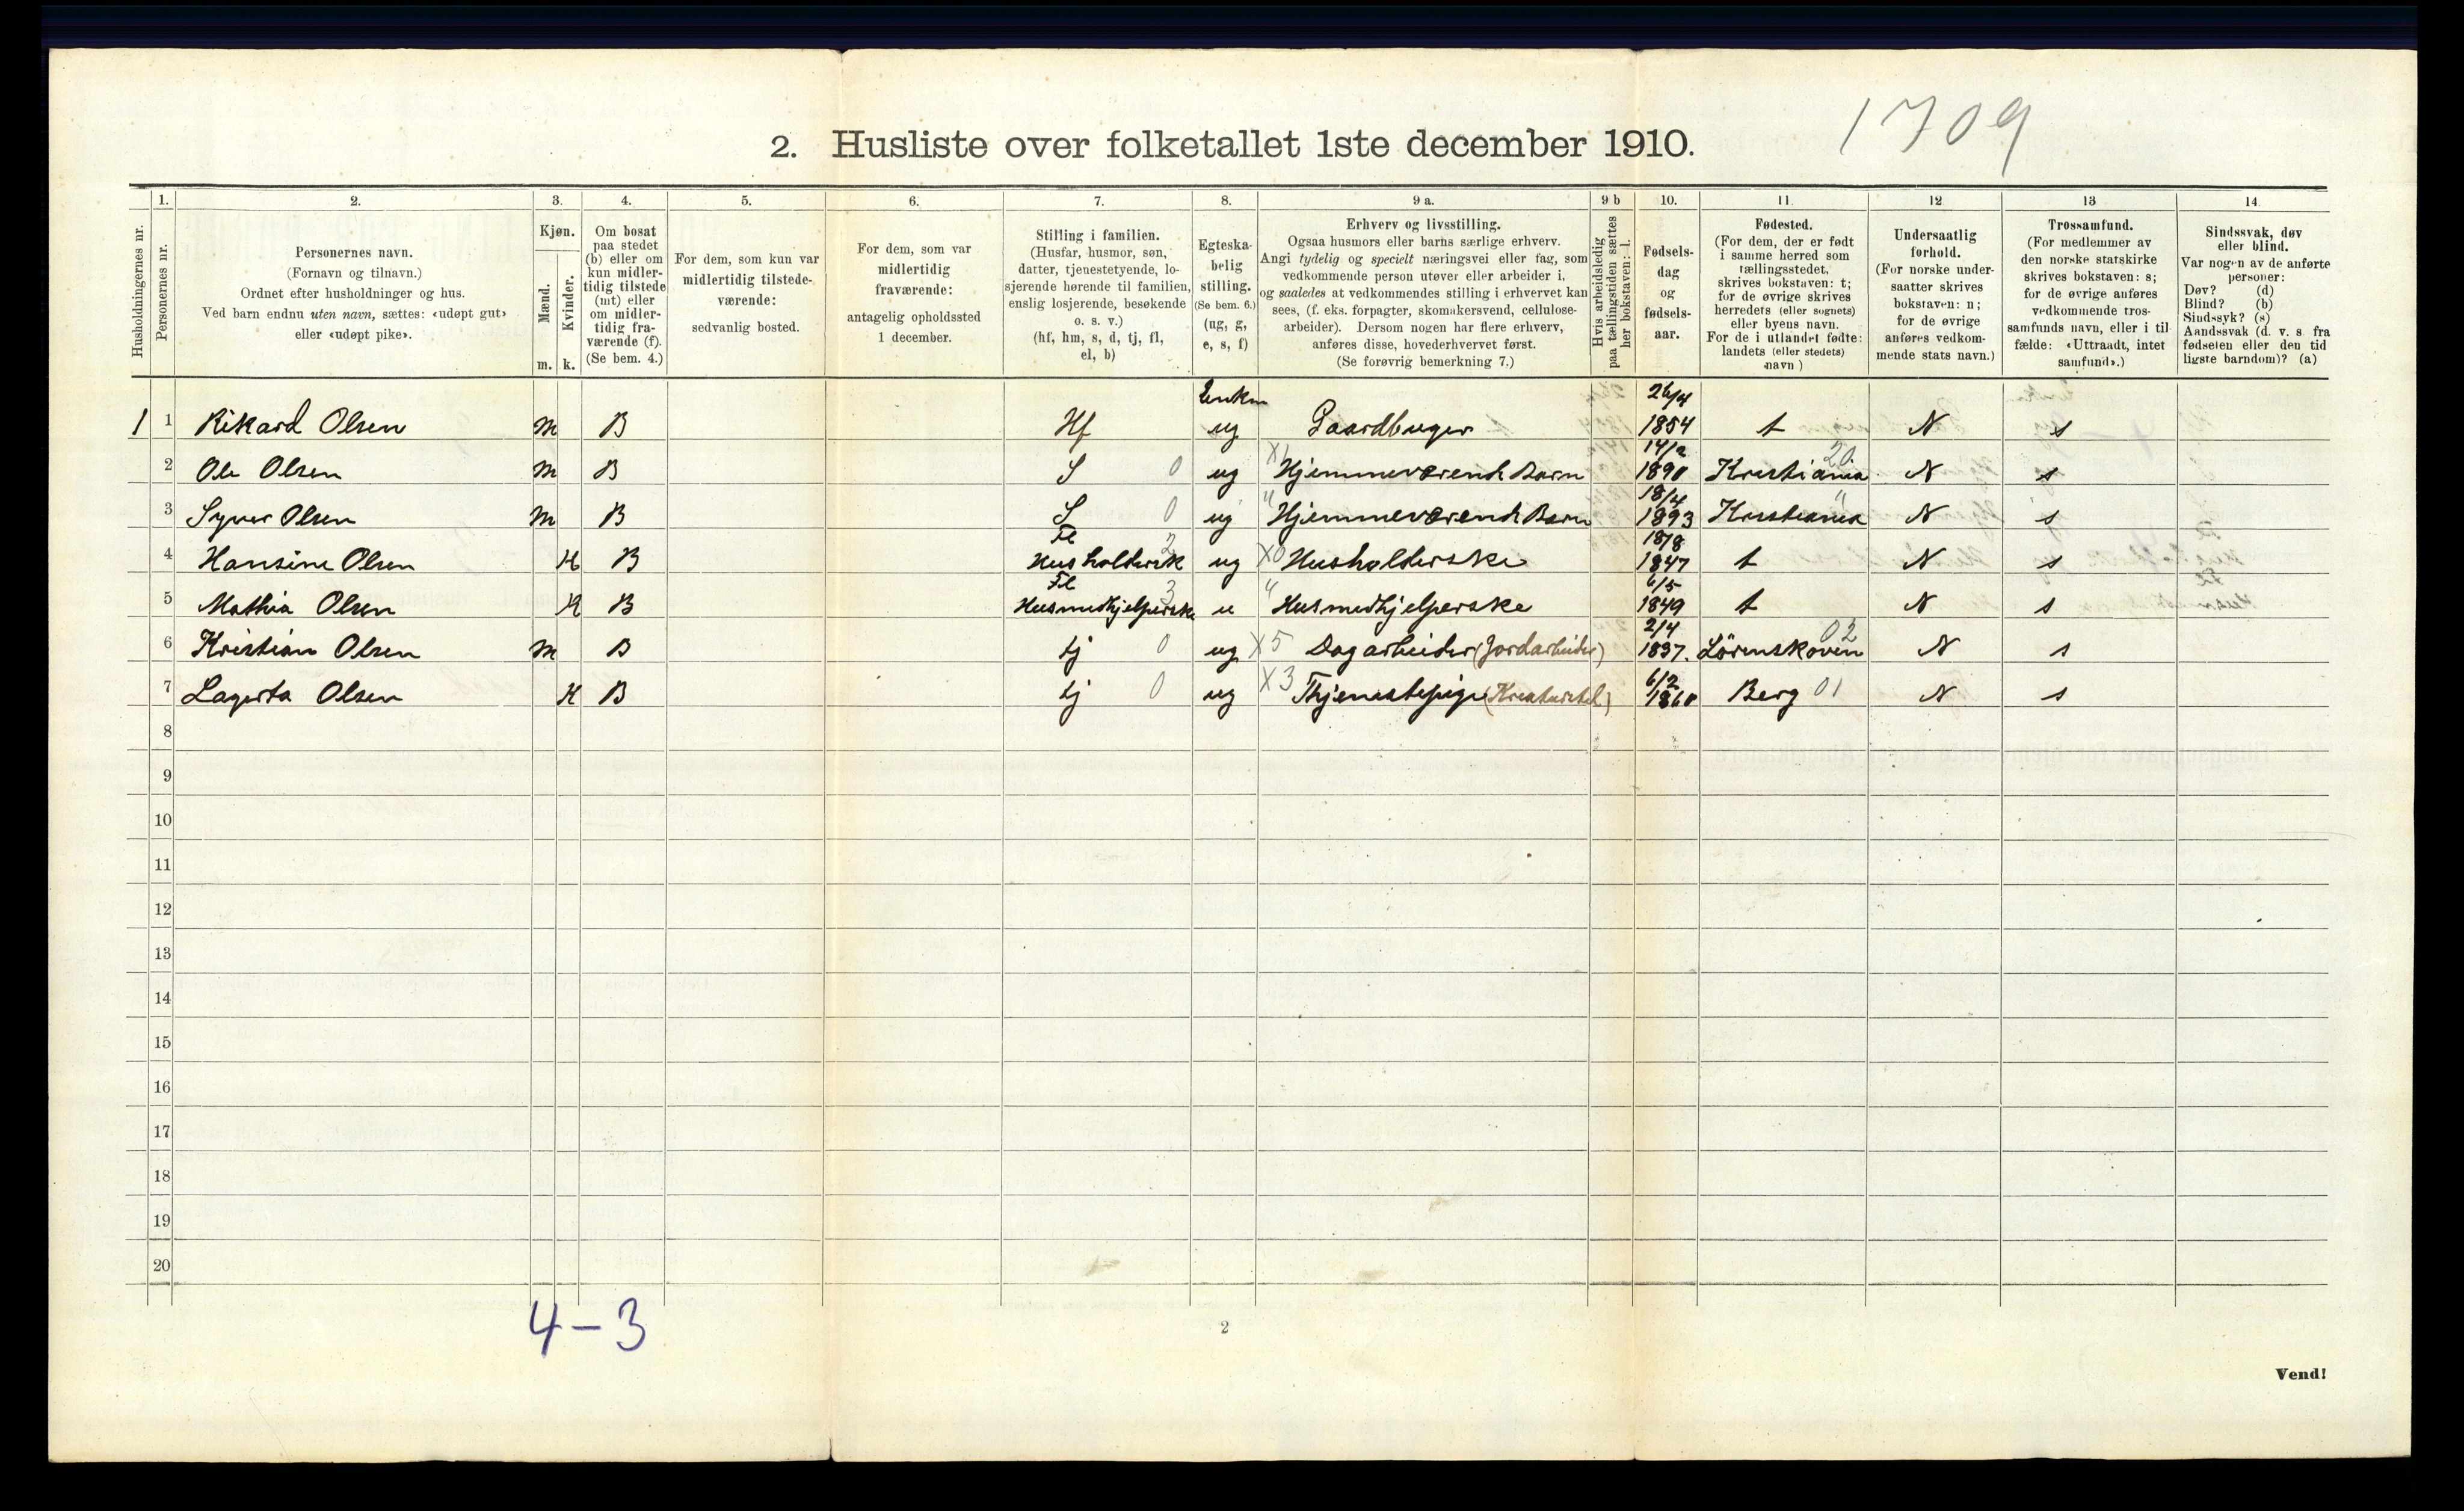 1709
2. Husliste over folketallet 1ste december 1910.
Husholdningernes nr.
1.
Personernes nr.
2.
Personernes navn.
(Fornavn og tilnavn.)
Ordnet efter husholdninger og hus.
Ved barn endnu uten navn, sættes: «udøpt gut»
eller «udøpt pike».
3.
Kjøn.
Mænd.
Kvinder.
m. k.
4.
Om bosat
paa stedet
(b) eller om
kun midler-
tidig tilstede
(mt) eller
om midler-
tidig fra-
værende (f).
(Se bem. 4.)
5.
For dem, som kun var
midlertidig tilstede-
værende:
sedvanlig bosted.
6.
For dem, som var
midlertidig
fraværende:
antagelig opholdssted
1 december.
7.
Stilling i familien.
(Husfar, husmor, søn,
datter, tjenestetyende, lo-
sjerende hørende til familien,
enslig losjerende, besøkende
o. s. v.)
(hf, hm, s, d, tj, fl,
el, b)
8.
Egteska-
belig
stilling.
(Se bem. 6.)
(ug, g,
e, s, f)
9 a.
Erhverv og livsstilling.
Ogsaa husmors eller barns særlige erhverv.
Angi tydelig og specielt næringsvei eller fag, som
vedkommende person utøver eller arbeider i,
og saaledes at vedkommendes stilling i erhvervet kan
sees, (f. eks. forpagter, skomakersvend, cellulose-
arbeider). Dersom nogen har flere erhverv,
anføres disse, hovederhvervet først.
(Se forøvrig bemerkning 7.)
9 b
Hvis arbeidsledig
paa tællingstiden sættes
her bokstaven: l.
10.
Fødsels-
dag
og
fødsels-
aar.
11.
Fødested.
(For dem, der er født
i samme herred som
tællingsstedet,
skrives bokstaven: t;
for de øvrige skrives
herredets (eller sognets)
eller byens navn.
For de i utlandet fødte:
landets (eller stedets)
navn)
12
Undersaatlig
forhold.
(For norske under-
saatter skrives
bokstaven: n;
for de øvrige
anføres vedkom-
mende stats navn.)
13
Trossamfund.
(For medlemmer av
den norske statskirke
skrives bokstaven: s;
for de øvrige anføres
vedkommende tros-
samfunds navn, eller i til
fælde: «Uttraadt, intet
samfund».)
14
Sindssvak, døv
eller blind.
Var nogen av de anførte
personer:
Døv? (d)
Blind? (b)
Sindssyk? (s)
Aandssvak (d. v. s. fra
fødselen eller den tid
ligste barndom)? (a)
Enkm 26/4
1 1 Rikard Olsen m B Hf ug Gaardbruger 1854 t N s
14/2 20
2 Ole Olsen m B S 0 ug X1 Hjemmeværende Barn 1890 Kristiania N s
18/4 "
3 Syver Olsen m B S 0 ug " Hjemmeværende Barn 1893 Kristiania N s
Fl 2 18/8
4 Hansine Olsen K B Husholdersk ug X0 Husholderske 1847 t N s
Fl 3 6/5
5 Mathia Olsen K B Husmedhjelperske u " Husmedhjelperske 1849 t N s
2/4 02
6 Kristian Olsen m B tj 0 ug X5 Dagarbeider (Jordarbeider) 1837. Lörenskoven N s
6/2
7 Lagerta Olsen K B tj 0 ug X3 Thjenestepige (Kreaturstel) 1860 Berg 01 N s
8
9
10
11
12
13
14
15
16
17
18
19
20
4-3
2
Vend!